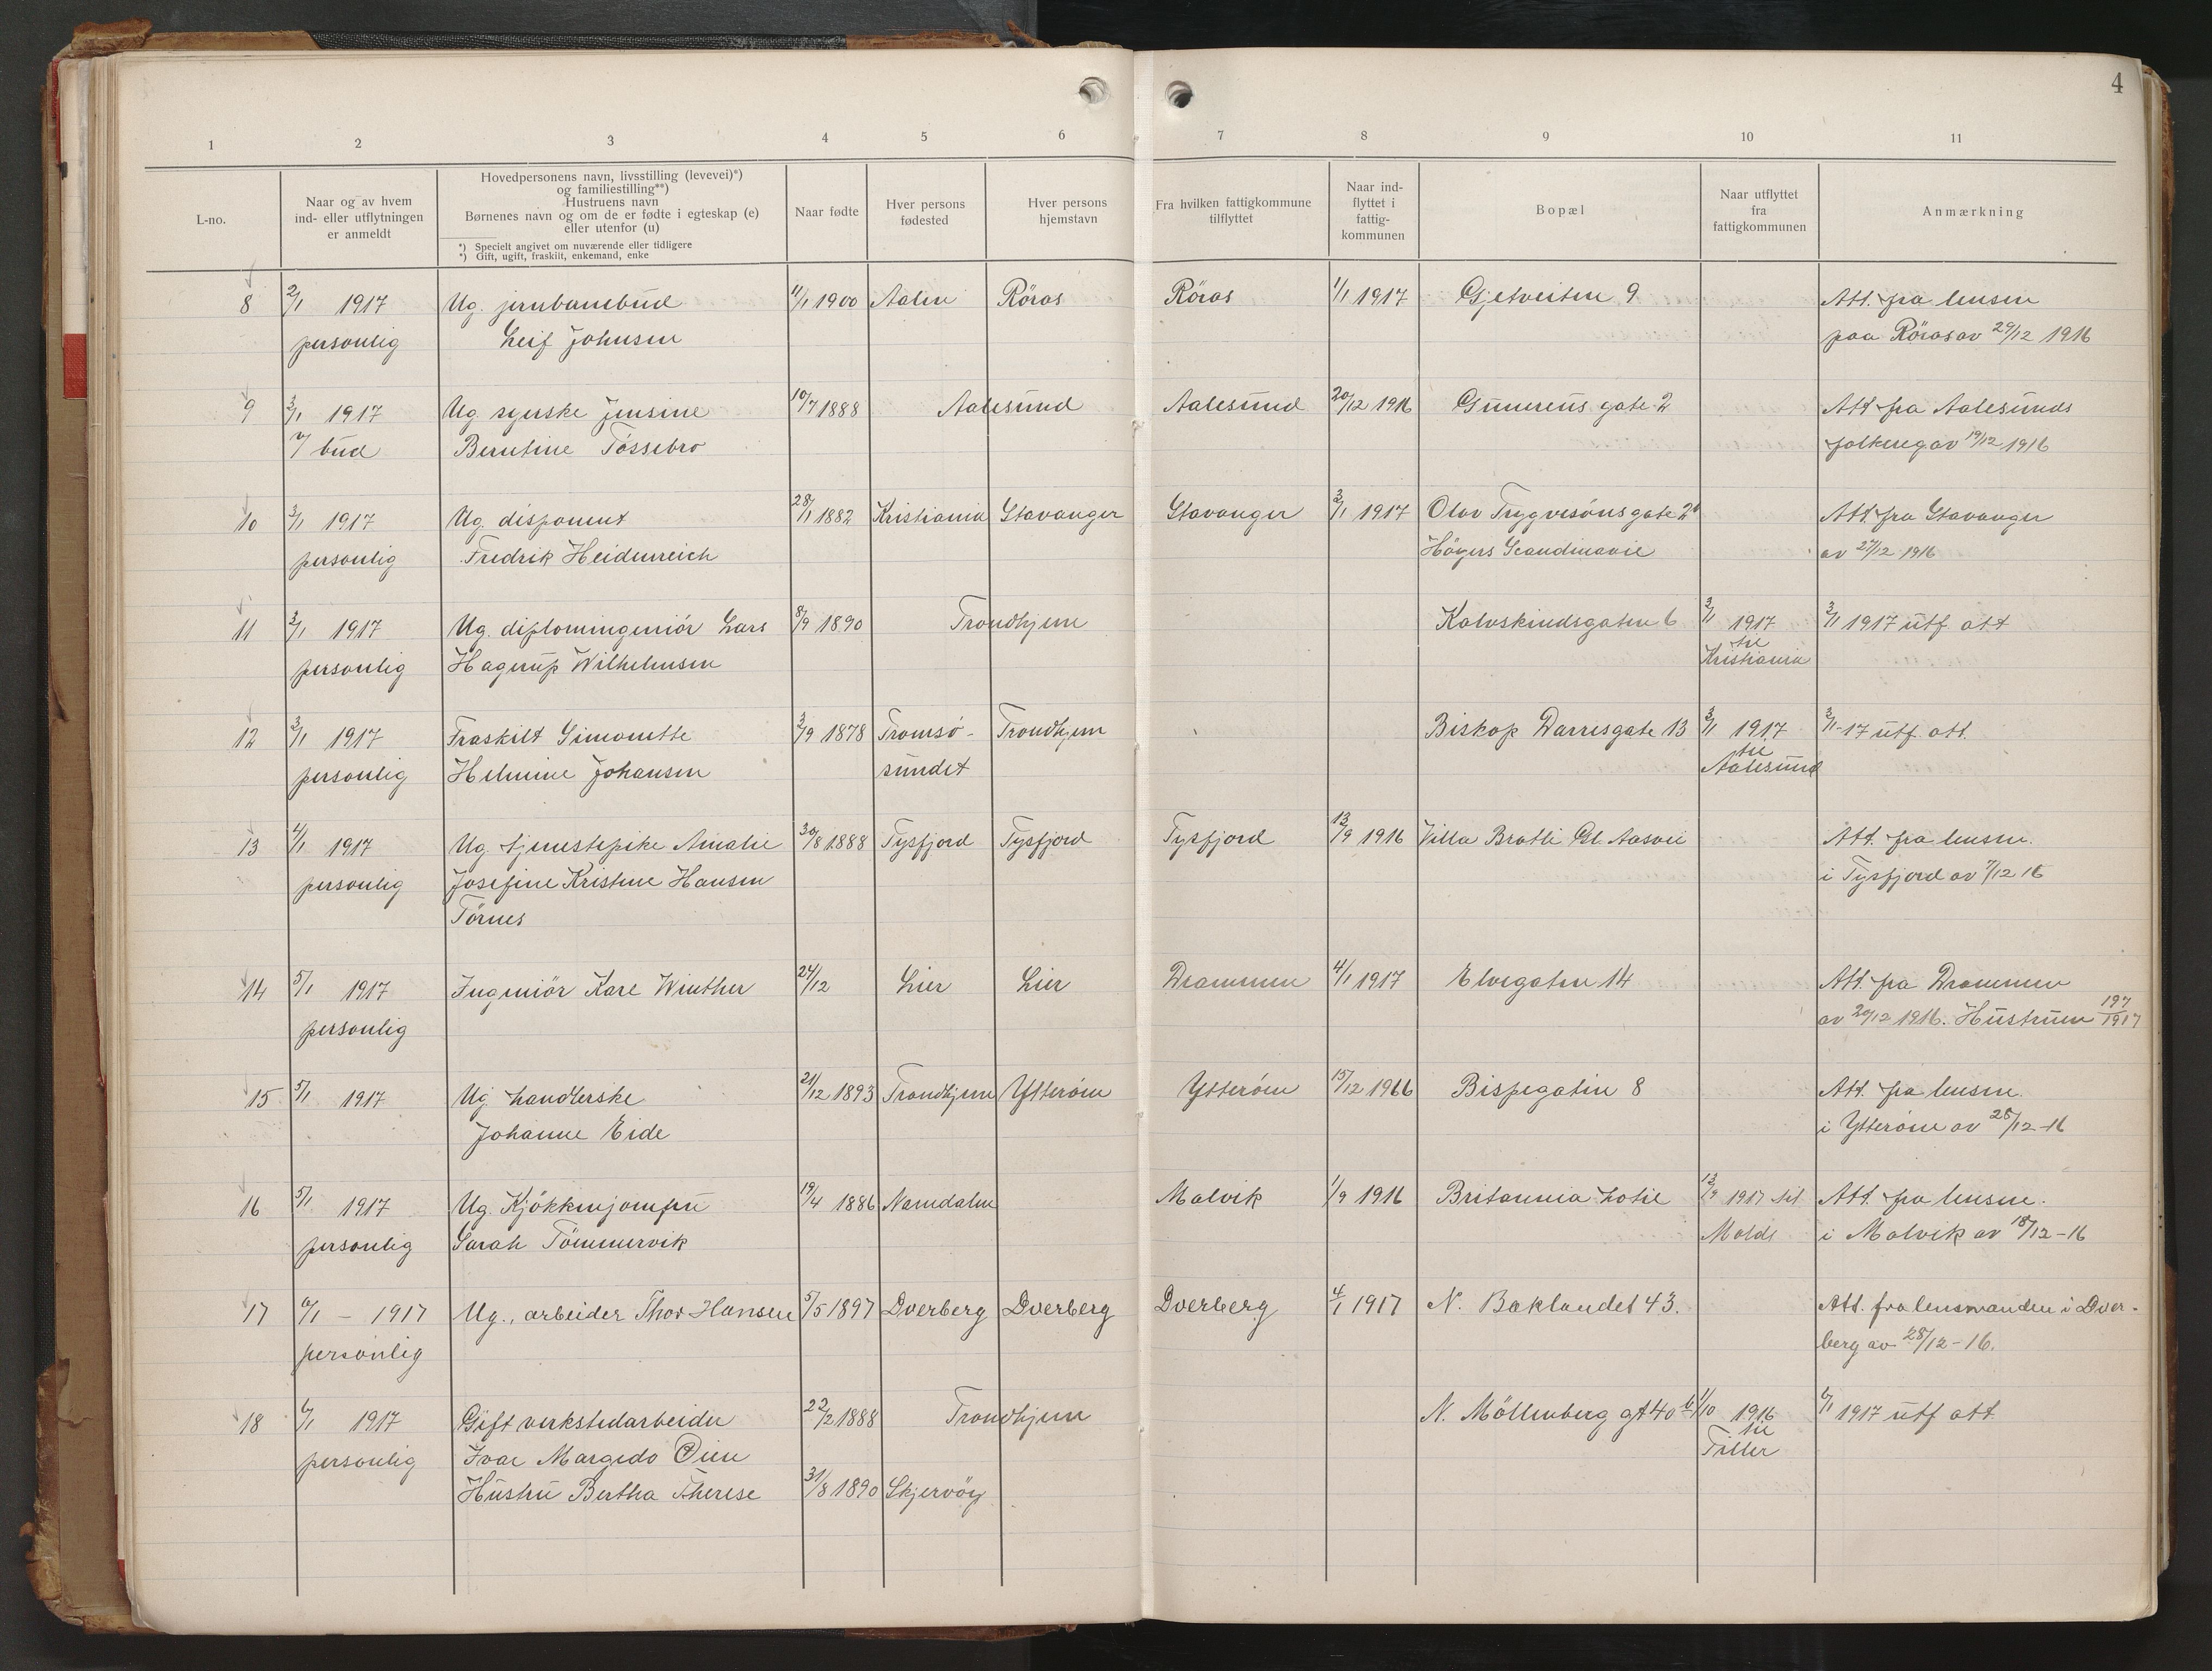 4
1 2 3 4 5 6 7 8 9 10 11
L-no.
Naar og av hvem
ind- eller utflytningen
er anmeldt
Hovedpersonens navn, livsstilling (levevei)*)
og familiestilling**)
Hustruens navn
Børnenes navn og om de er fødte i egteskap (e)
eller utenfor (u)
*) Specielt angivet om nuværende eller tidligere
*) Gift, ugift, fraskilt, enkemand, enke
Naar fødte
Hver persons
fødested
Hver persons
hjemstavn
Fra hvilken fattigkommune
tilflyttet
Naar ind-
flyttet i
fattig-
kommunen
Bopæl
Naar utflyttet
fra
fattigkommunen
Anmærkning
8 2/1 1917 Ug. jernbanebud 11/1 1900 Aalen Röros Röros 1/1 1917 Gjetveiten 9 Att. fra lensm
personlig Leif Johnsen paa Röros av 29/12 1916
9 3/1 1917 Ug. syerske Jensine 10/7 1888 Aalesund Aalesund 20/12 1916 Gunnerus gate 2 Att fra Aalesunds
v/ bud Berntine Tössebro folkereg av 19/12 1916
10 3/1 1917 Ug. disponent 28/1 1882 Kristiania Stavanger Stavanger 3/1 1917 Olav Trygvesönsgate 2 Att. fra Stavanger
personlig Fredrik Heidenreich Höyers Scandinavie av 27/12 1916
11 3/1 1917 Ug. diplomingeniör Lars 8/9 1890 Trondhjem Kalvskindsgaten 6 3/1 1917 3/1 1917 utf. att
personlig Hagerup Wilhelmsen til
Kristiania
12 3/1 1917 Fraskilt Simonette 3/9 1878 Tromsö- Trondhjem Biskop Darresgate 13 3/1 1917 3/1-17 utf. att.
personlig Helmine Johansen sundet til
Aalesund
13 4/1 1917 Ug. tjenestepike Amalie 30/8 1888 Tysfjord Tysfjord Tysfjord 13/9 1916 Villa Bratli Gl. Aasvei Att. fra lensm.
personlig Josefine Kristine Hansen i Tysfjord av 7/12 16
Törnes
14 5/1 1917 Ingeniör Kare Winther 24/12 Lier Lier Drammen 4/1 1917 Elvegaten 14 Att. fra Drammen
personlig av 20/12 1916. Hustruen 197/1917
15 5/1 1917 Ug. handlerske 21/12 1893 Trondhjem Ytteröen Ytteröen 15/12 1916 Bispegaten 8 Att. fra lensm.
Johanne Eide i Ytteröen av 28/12-16
16 5/1 1917 Ug. Kjökkenjomfru 19/4 1886 Namdalen Malvik 1/9 1916 Britannia hotel 13/9 1917 til Att. fra lensm.
personlig Sarah Tömmervik Molde i Malvik av 18/12-16
17 6/1 - 1917 Ug., arbeider Thor Hansen 5/5 1897 Dverberg Dverberg Dverberg 4/1 1917 N. Baklandet 43. Att. fra lensmanden i Dver-
personlig berg av 28/12-16.
18 6/1 1917 Gift verkstedarbeider 22/2 1888 Trondhjem N. Möllenberg gt 40 b 1/10 1916 6/1 1917 utf att.
personlig Ivar Margido Öien til
Tiller
Hustru Bertha Therese 31/8 1890 Skjervöy